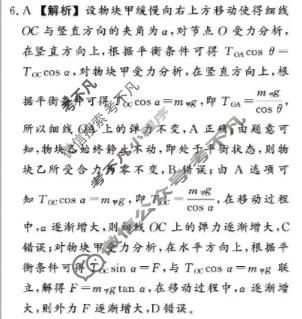 6. A 【解析】设物块甲缓慢向右上方移动使得细线
OC 与竖直方向的夹角为 α,对节点 O 受力分析,
在竖直方向上,根据平衡条件可得 T_OA cos θ =
T_OC cos α,对物块甲受力分析,在竖直方向上,根
据平衡条件可得 T_OC cos α = m甲g,即 T_OA = m甲g / cos θ,
所以细线 OA 上的弹力不变,A 正确;由题意可
知,物块乙始终静止不动,即处于平衡状态,则物
块乙所受合力为零不变,B 错误;由 A 选项可
知 T_OC cos α = m甲g,即 T_OC = m甲g / cos α,在移动过程
中,α 逐渐增大,则细线 OC 上的弹力逐渐增大,C
错误;对物块甲受力分析,在水平方向上,根据平
衡条件可得 T_OC sin α = F,与 T_OC cos α = m甲g 联
立,解得 F = m甲g tan α,在移动过程中,α 逐渐增
大,则外力 F 逐渐增大,D 错误。